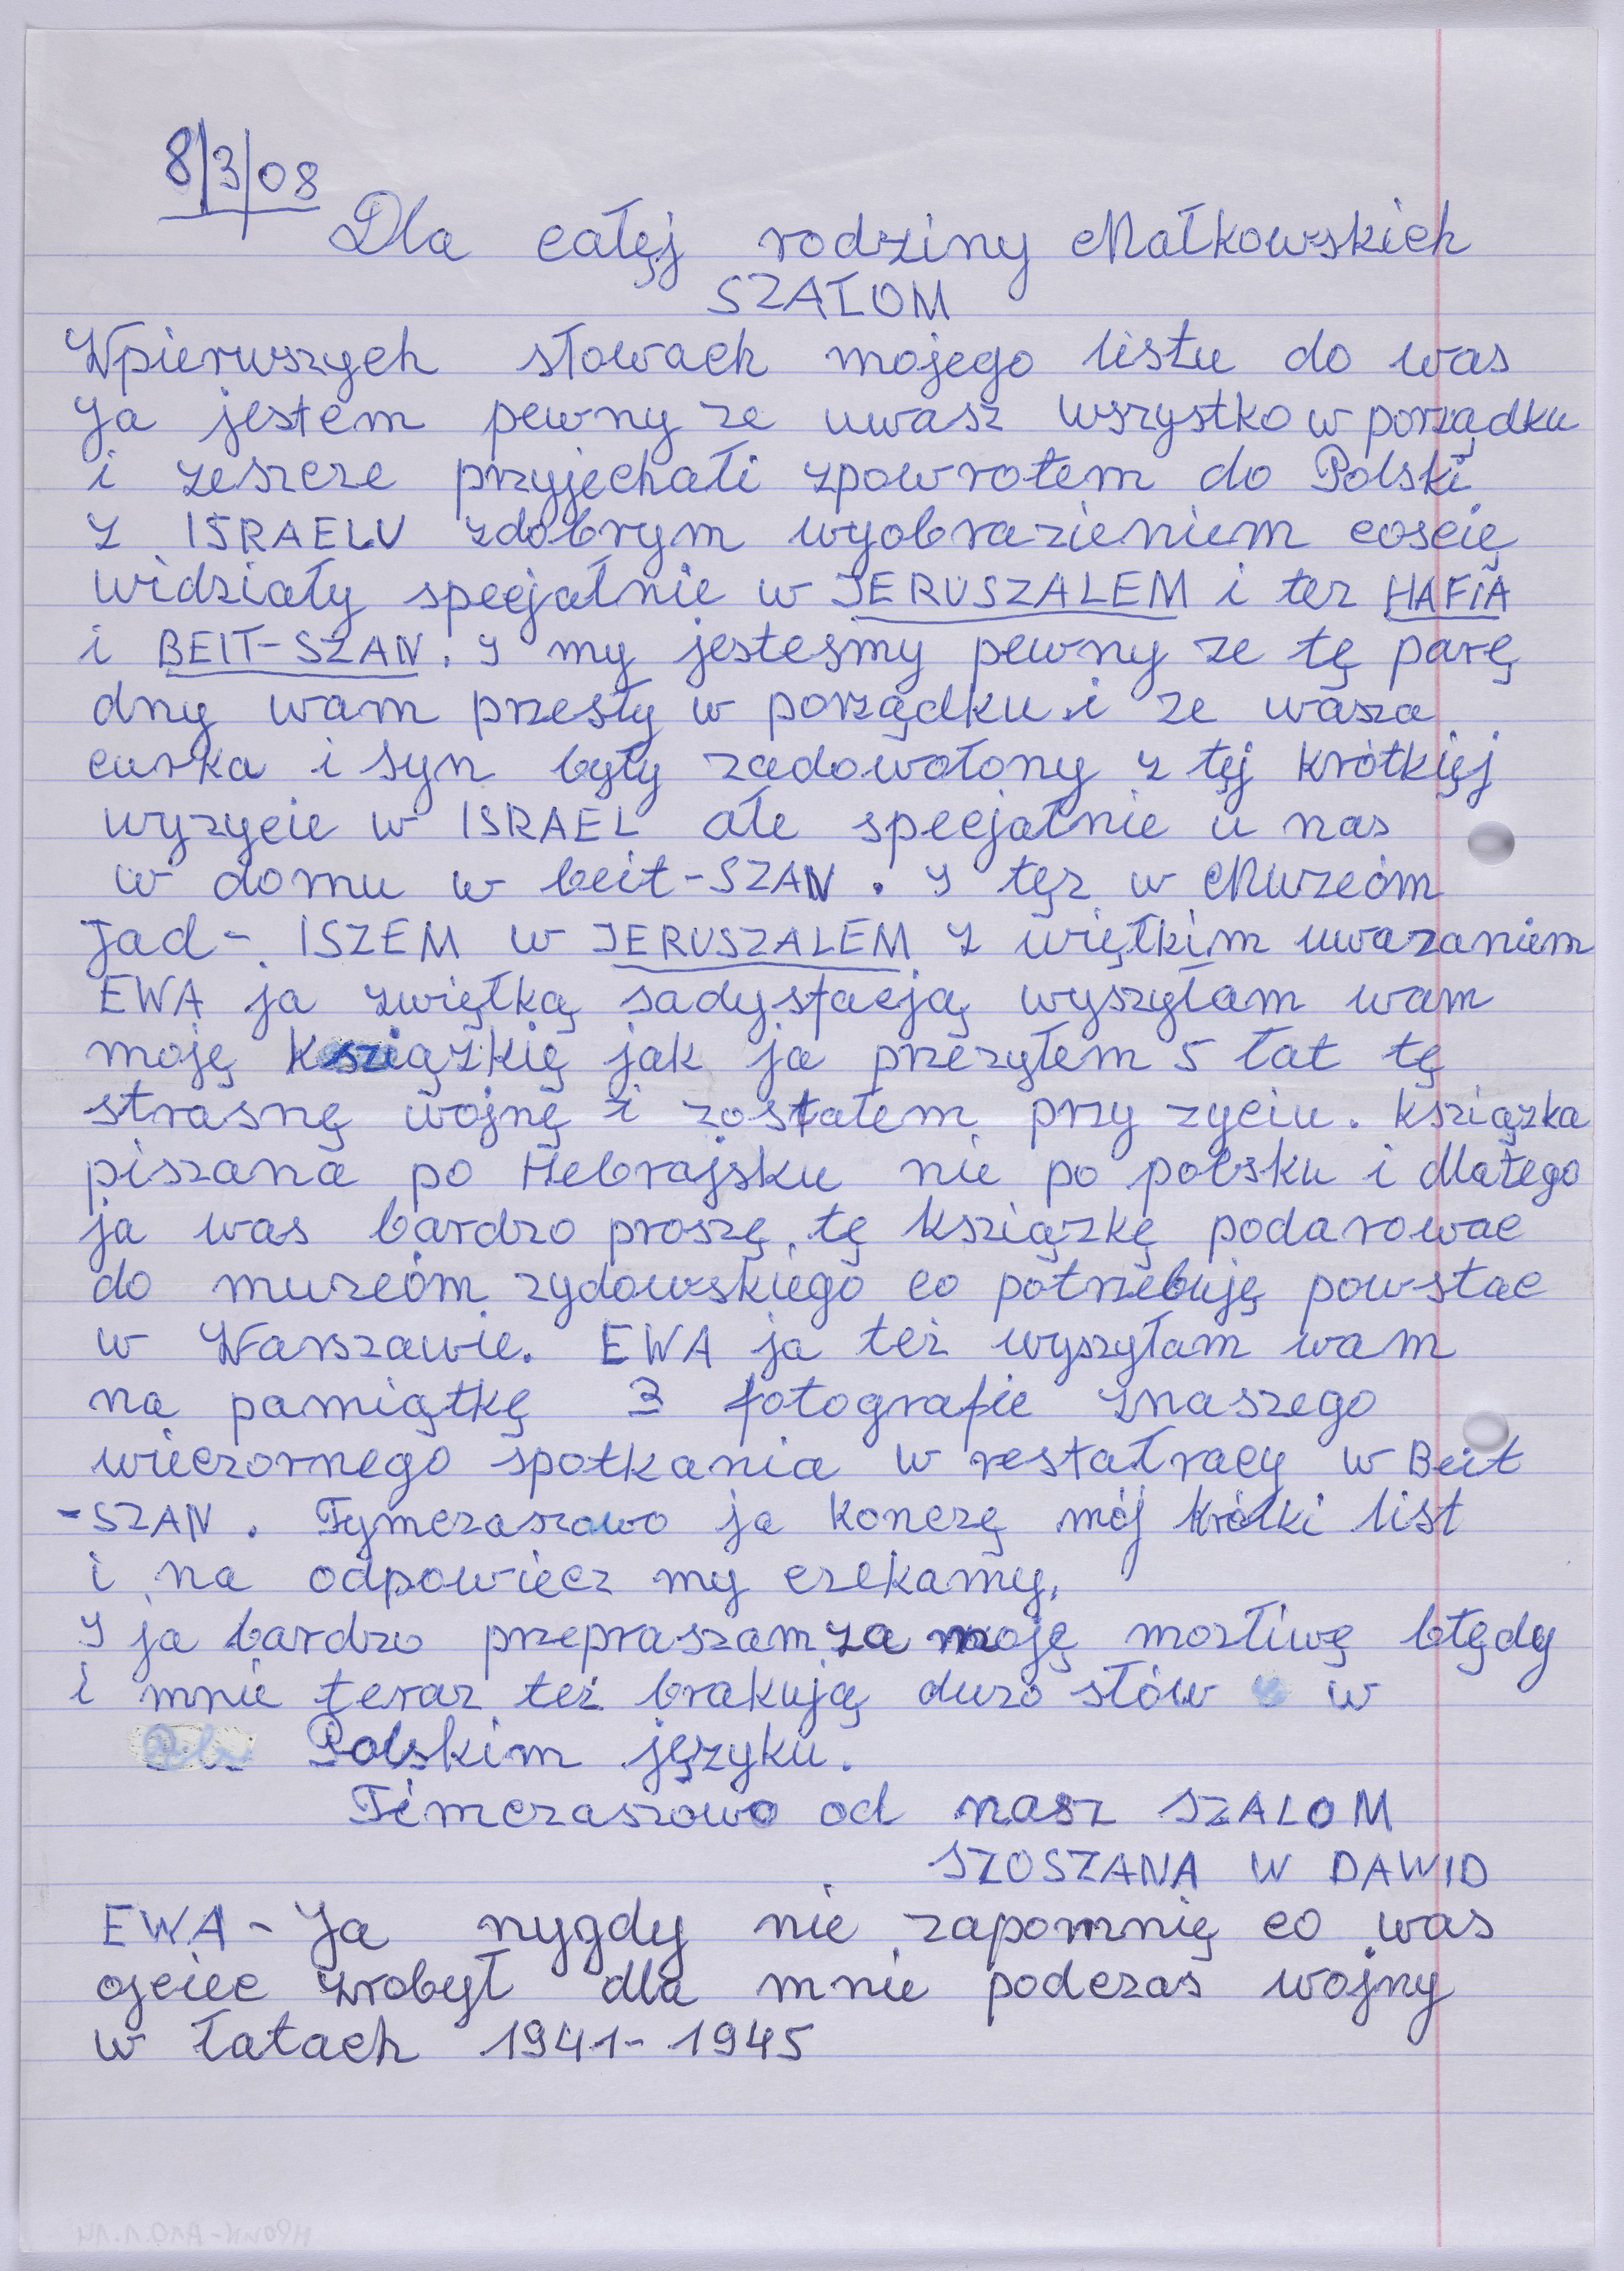 8/3/08
Dla całęj rodziny Małkowskich
SZAŁOM
Wpierwszych słowach mojego listu do was
Ja jestem pewny ze uwasz wszystko w porządku
i zeszcze przyjechałi zpowrotem do Polski
z ISRAELU zdobrym wyobrazieniem coscię
widziały specjałnie w JERUSZALEM i tez HAFIA
i BEIT-SZAN. I my jestesmy pewny ze tę parę
dny wam przesły w porządku i ze wasza
curka i syn były zadowołony z tęj krótkięj
wyzycie w ISRAEL ałe specjałnie u nas
w domu w beit-SZAN. I tęz w Muzeóm
Jad-ISZEM w JERUSZALEM z więłkim uwazaniem
EWA ja zwięłką sadysfacją wyszyłam wam
moję ksziązkię jak ja przezyłem 5 łat tę
strasnę wojnę i zostałem przy zyciu. ksziązka
piszana po Hebrajsku nie po połsku i dlatego
ja was bardzo proszę tę ksziązkę podarowac
do muzeóm zydowskiego co potrzebuję powstac
w Warszawie. EWA ja tez wyszyłam wam
na pamiątkę 3 fotografie znaszego
wieczornego spotkania w restałracy w Beit
-SZAN. Tymczaszowo ja konczę mój krótki list
i na odpowiecz my czekamy.
I ja bardzo przepraszam za moję mozliwę błędy
i mnie teraz tez brakują duzo słów w
Polskim języku.
Timczaszowo od nasz SZALOM
SZOSZANA W DAWID
EWA - Ja nygdy nie zapomnię co was
ojciec zrobył dla mnie podczas wojny
w łatach 1941-1945